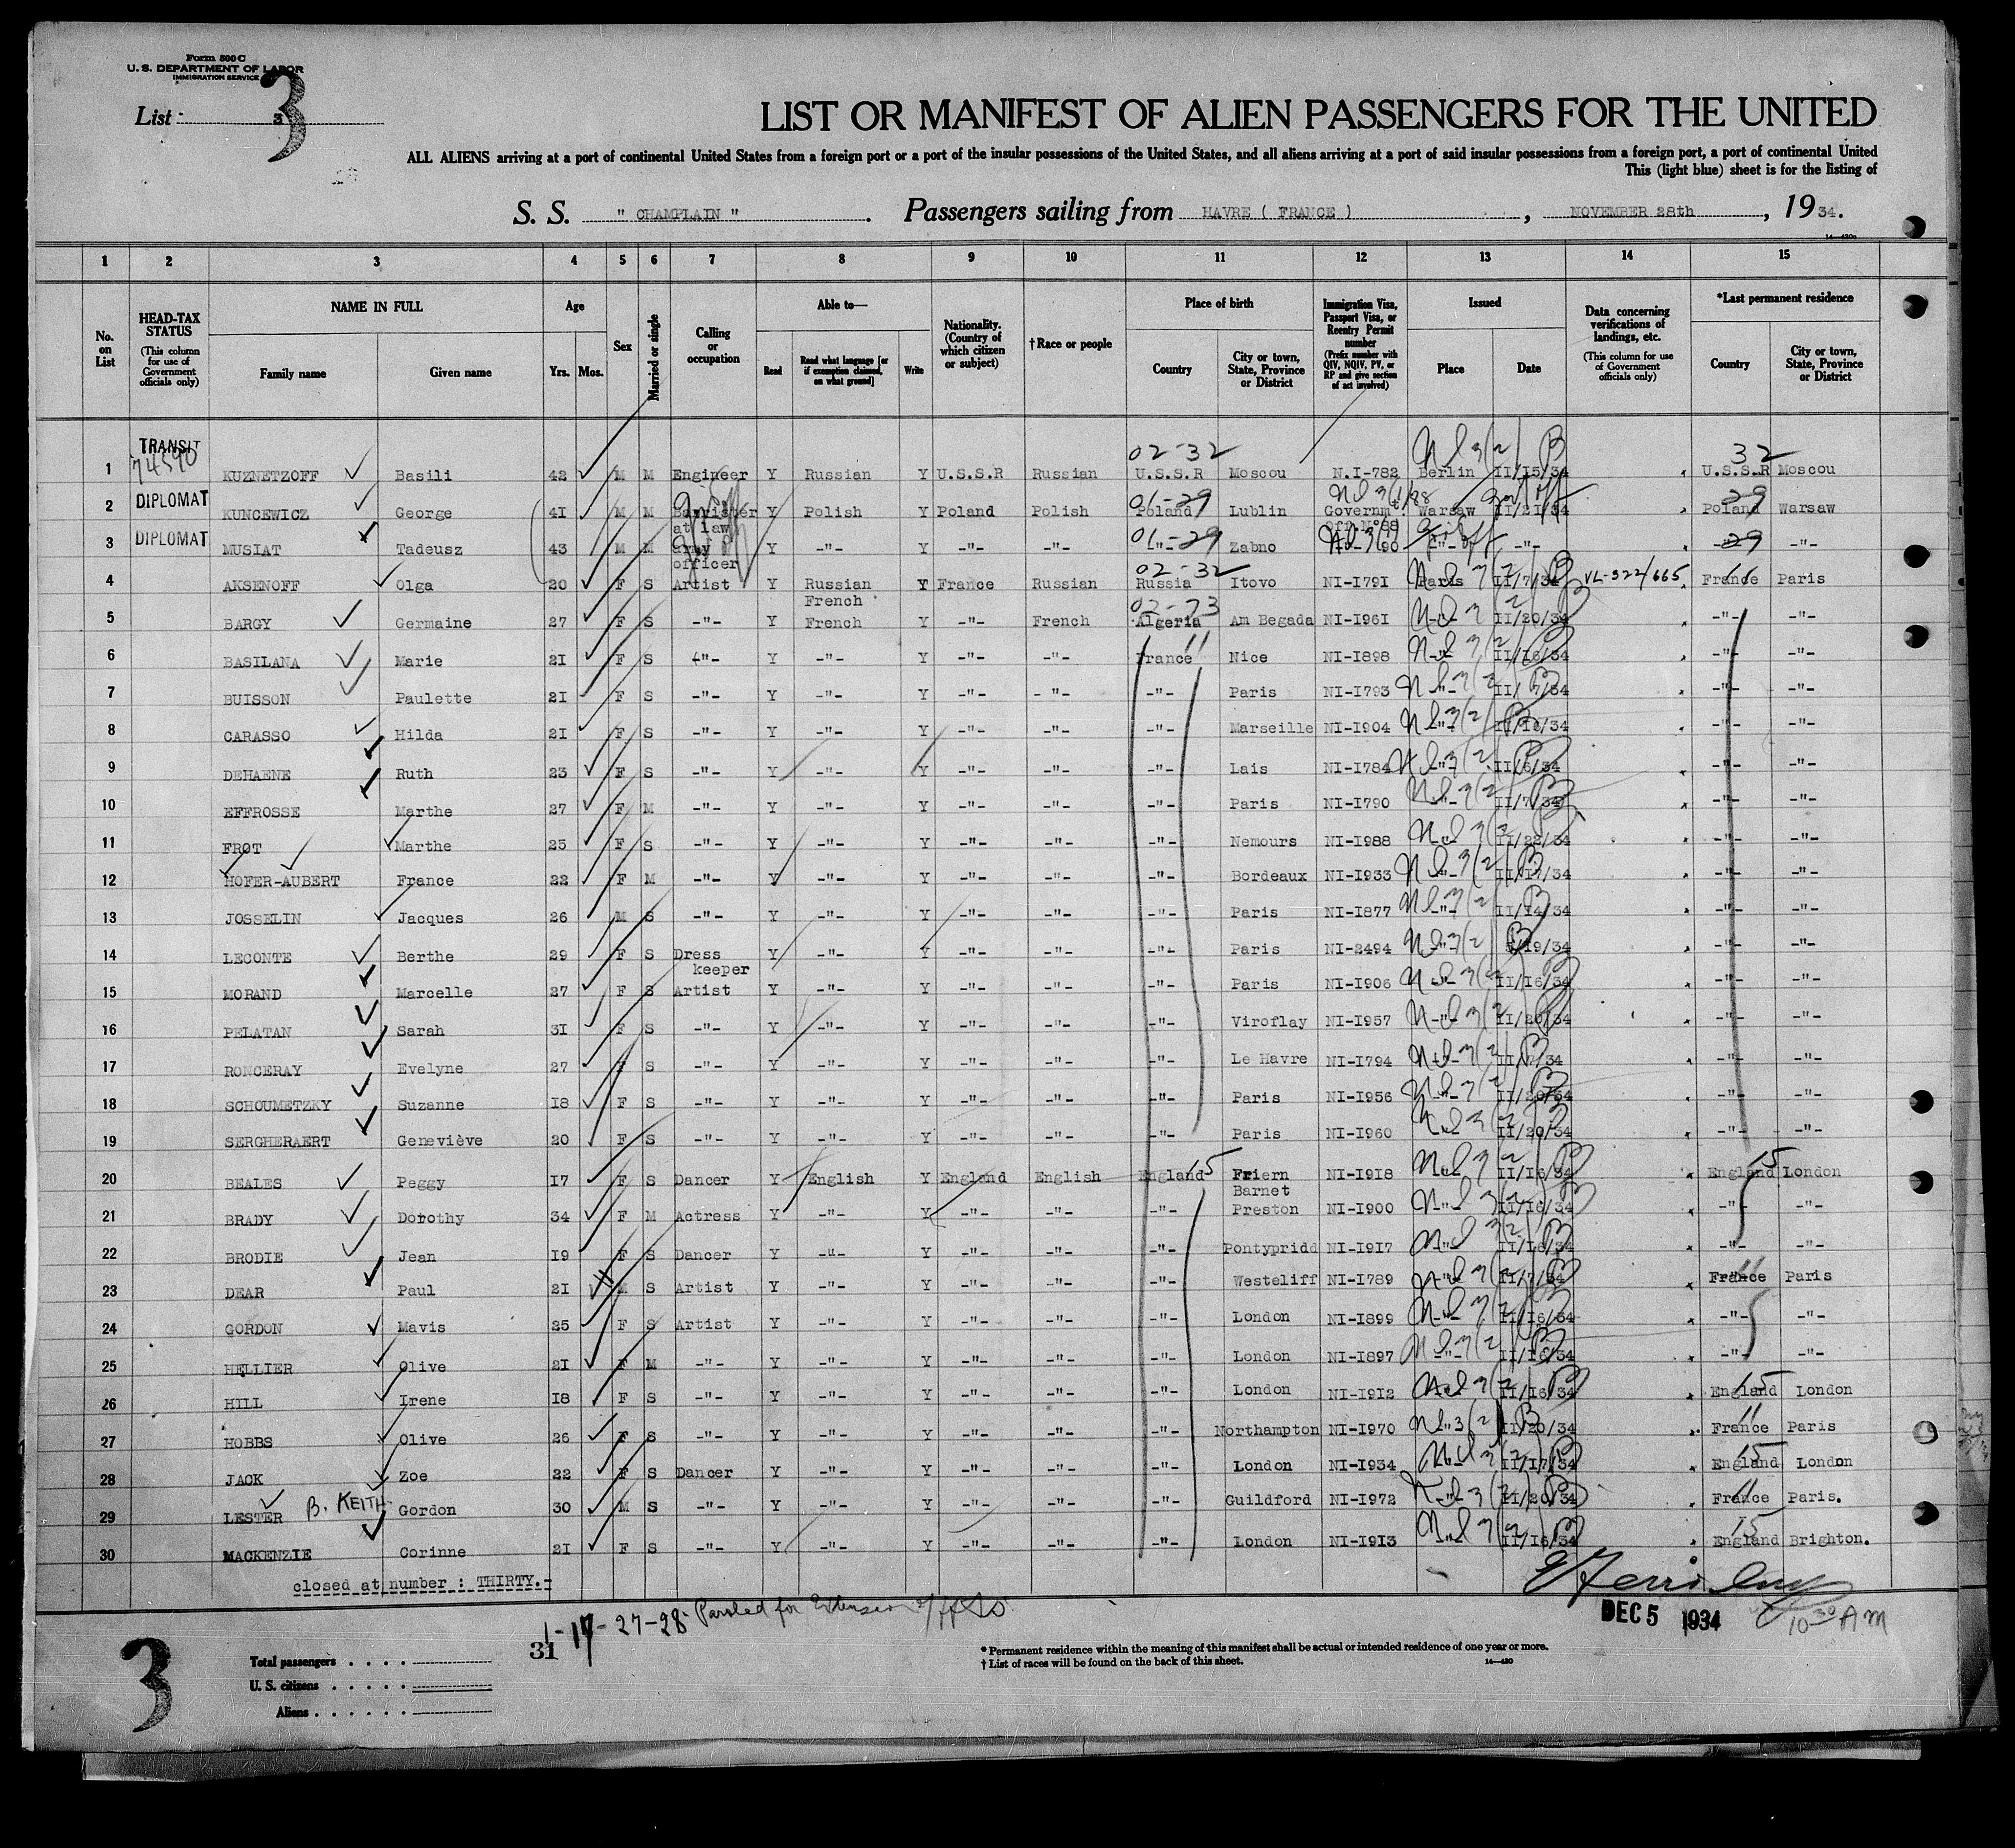 Form 500 C
U. S. DEPARTMENT OF LABOR
IMMIGRATION SERVICE
List 3
3
LIST OR MANIFEST OF ALIEN PASSENGERS FOR THE UNITED
ALL ALIENS arriving at a port of continental United States from a foreign port or a port of the insular possessions of the United States, and all aliens arriving at a port of said insular possessions from a foreign port, a port of continental United
This (light blue) sheet is for the listing of
S. S. " CHAMPLAIN " . Passengers sailing from HAVRE ( FRANCE ) , NOVEMBER 28th , 1934.
1 2 3 4 5 6 7 8 9 10 11 12 13 14 15
No. on List
HEAD-TAX STATUS (This column for use of Government officials only)
NAME IN FULL Family name Given name
Age Yrs. Mos.
Sex
Married or single
Calling or occupation
Able to— Read Read what language [or if exemption claimed, on what ground] Write
Nationality. (Country of which citizen or subject)
† Race or people
Place of birth Country City or town, State, Province or District
Immigration Visa, Passport Visa, or Reentry Permit number (Prefix number with QIV, NQIV, PV, or RP and give section of act involved)
Issued Place Date
Data concerning verifications of landings, etc. (This column for use of Government officials only)
*Last permanent residence Country City or town, State, Province or District
TRANSIT 02-32 32
1 74590 KUZNETZOFF Basili 42 M M Engineer Y Russian Y U.S.S.R Russian U.S.S.R Moscou N.I-782 Berlin II/I5/34 U.S.S.R Moscou
2 DIPLOMAT KUNCEWICZ George 4I M M Barrister at law Y Polish Y Poland Polish 01-29 Poland Lublin Governm. off. N°88 Warsaw II/2I/34 29 Poland Warsaw
3 DIPLOMAT MUSIAT Tadeusz 43 M M Army officer Y -"- Y -"- -"- 01-29 -"- Zabno 90 -"- -"- 29 -"- -"-
4 AKSENOFF Olga 20 F S Artist Y Russian French Y France Russian 02-32 Russia Itovo NI-I79I Paris II/7/34 VL-322/665 France Paris
5 BARGY Germaine 27 F S -"- Y French Y -"- French 02-73 Algeria Am Begada NI-I96I -"- II/20/34 -"- -"-
6 BASILANA Marie 2I F S -"- Y -"- Y -"- -"- France 11 Nice NI-I898 -"- II/I6/34 -"- -"-
7 BUISSON Paulette 2I F S -"- Y -"- Y -"- -"- -"- Paris NI-I793 -"- II/7/34 -"- -"-
8 CARASSO Hilda 2I F S -"- Y -"- Y -"- -"- -"- Marseille NI-I904 -"- II/I6/34 -"- -"-
9 DEHAENE Ruth 23 F S -"- Y -"- Y -"- -"- -"- Lais NI-I784 -"- II/6/34 -"- -"-
10 EFFROSSE Marthe 27 F M -"- Y -"- Y -"- -"- -"- Paris NI-I790 -"- II/7/34 -"- -"-
11 FROT Marthe 25 F S -"- Y -"- Y -"- -"- -"- Nemours NI-I988 -"- II/22/34 -"- -"-
12 HOFER-AUBERT France 22 F M -"- Y -"- Y -"- -"- -"- Bordeaux NI-I933 -"- II/I7/34 -"- -"-
13 JOSSELIN Jacques 26 M S -"- Y -"- Y -"- -"- -"- Paris NI-I877 -"- II/I4/34 -"- -"-
14 LECONTE Berthe 29 F S Dress keeper Y -"- Y -"- -"- -"- Paris NI-2494 -"- /I9/34 -"- -"-
15 MORAND Marcelle 27 F S Artist Y -"- Y -"- -"- -"- Paris NI-I906 -"- II/I6/34 -"- -"-
16 PELATAN Sarah 3I F S -"- Y -"- Y -"- -"- -"- Viroflay NI-I957 -"- II/20/34 -"- -"-
17 RONCERAY Evelyne 27 F S -"- Y -"- Y -"- -"- -"- Le Havre NI-I794 -"- II/7/34 -"- -"-
18 SCHOUMETZKY Suzanne I8 F S -"- Y -"- Y -"- -"- -"- Paris NI-I956 -"- II/20/34 -"- -"-
19 SERGHERAERT Geneviève 20 F S -"- Y -"- Y -"- -"- -"- Paris NI-I960 -"- II/20/34 -"- -"-
20 BEALES Peggy I7 F S Dancer Y English Y England English England 15 Friern Barnet NI-I9I8 -"- II/I6/34 England 15 London
21 BRADY Dorothy 34 F M Actress Y -"- Y -"- -"- -"- Preston NI-I900 -"- II/I6/34 -"- -"-
22 BRODIE Jean I9 F S Dancer Y -"- Y -"- -"- -"- Pontypridd NI-I9I7 -"- II/I6/34 -"- -"-
23 DEAR Paul 2I M S Artist Y -"- Y -"- -"- -"- Westeliff NI-I789 -"- II/7/34 France 11 Paris
24 GORDON Mavis 25 F S Artist Y -"- Y -"- -"- -"- London NI-I899 -"- II/I6/34 -"- -"-
25 HELLIER Olive 2I F M -"- Y -"- Y -"- -"- -"- London NI-I897 -"- II/I6/34 -"- -"-
26 HILL Irene I8 F S -"- Y -"- Y -"- -"- -"- London NI-I9I2 -"- II/I6/34 England 15 London
27 HOBBS Olive 26 F S -"- Y -"- Y -"- -"- -"- Northampton NI-I970 -"- II/20/34 France 11 Paris
28 JACK Zoe 22 F S Dancer Y -"- Y -"- -"- -"- London NI-I934 -"- II/I7/34 England 15 London
29 LESTER B. KEITH Gordon 30 M S -"- Y -"- Y -"- -"- -"- Guildford NI-I972 -"- II/20/34 France 11 Paris.
30 MACKENZIE Corinne 2I F S -"- Y -"- Y -"- -"- -"- London NI-I9I3 -"- II/I6/34 England 15 Brighton.
closed at number : THIRTY.-
1-17-27-28 Paroled for
DEC 5 1934 10 30 AM
31
3
Total passengers
U. S. citizens
Aliens
* Permanent residence within the meaning of this manifest shall be actual or intended residence of one year or more.
† List of races will be found on the back of this sheet.
14—430